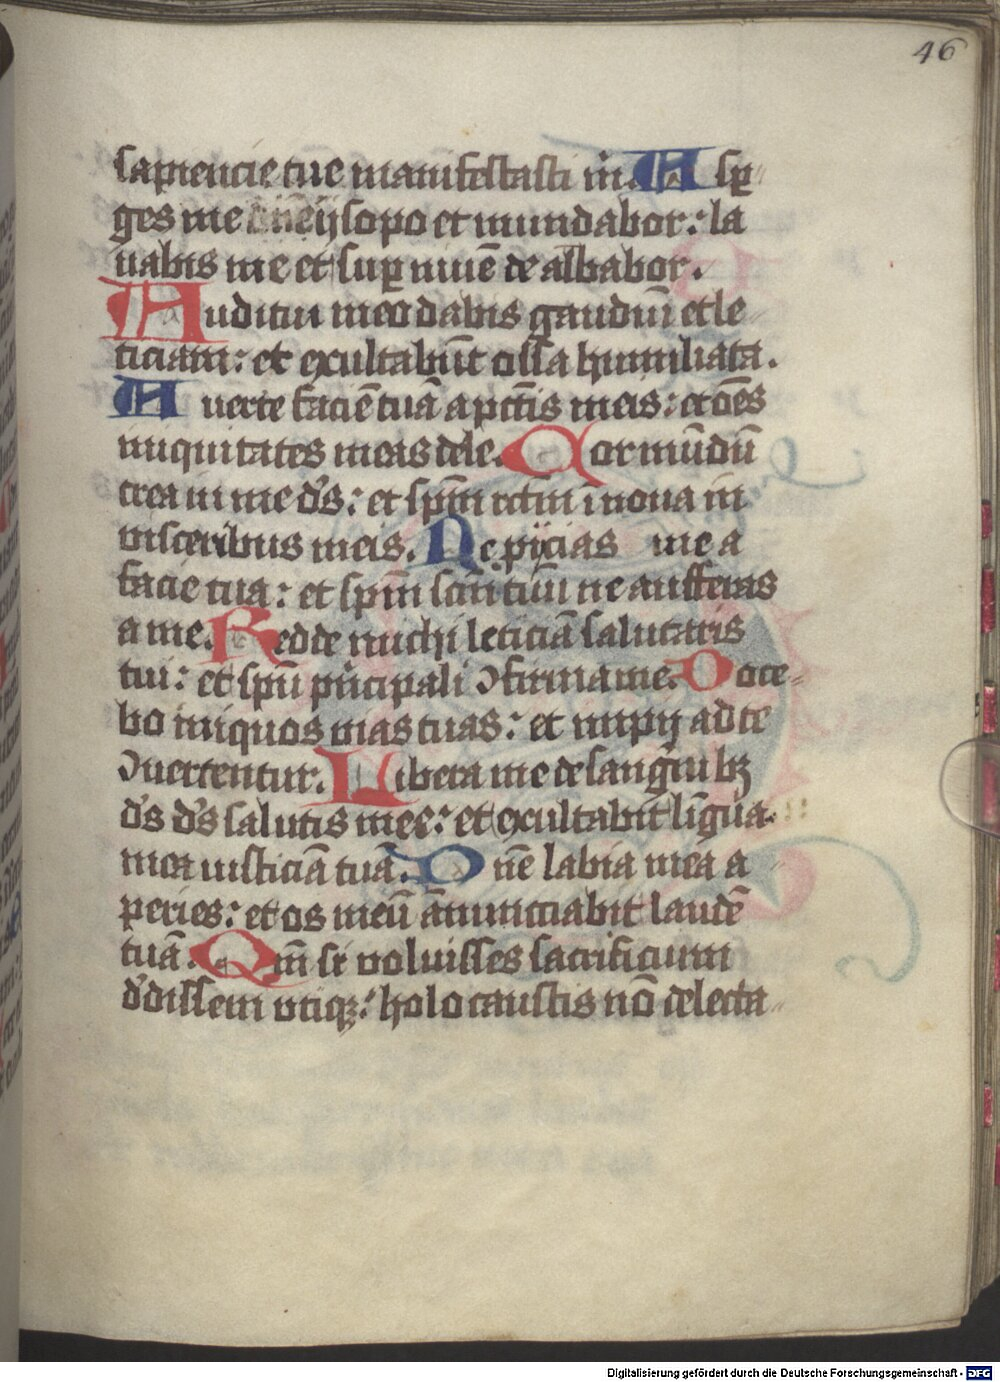 46
sapiencie tue manifestasti m̄. Asp̲
ges me dn̄e ysopo et mundabor: la
uabis me et sup̲ niuē de albabor.
Auditui meo dabis gaudiū et le
ticiam: et exultabūt ossa humiliata.
Auerte faciē tuā a pctīs meis: et oēs
iniquitates meas dele. Cor mūdū
crea in me d̓s: et sp̄m rc̄tm īnoua in
visceribus meis. Ne p̲ijcias me a
facie tua: et sp̄m sc̄m tuū ne aufferas
a me. Redde michi leticiā salutaris
tui: et sp̄u p̓ncipali ↄfirma me. Doce-
bo iniquos uias tuas: et impij ad te
ↄuertentur. Libera me de sangībꝫ
d̓s d̓s salutis mee: et exultabit lingua
mea iusticiā tuā. Dn̄e labia mea a
peries: et os meū ānunciabit laudē
tuā. Qm̄ si voluisses sacrificium
d̓dissem vtiqꝫ: holocaustis nō delecta
Digitalisierung gefördert durch die Deutsche Forschungsgemeinschaft - DFG